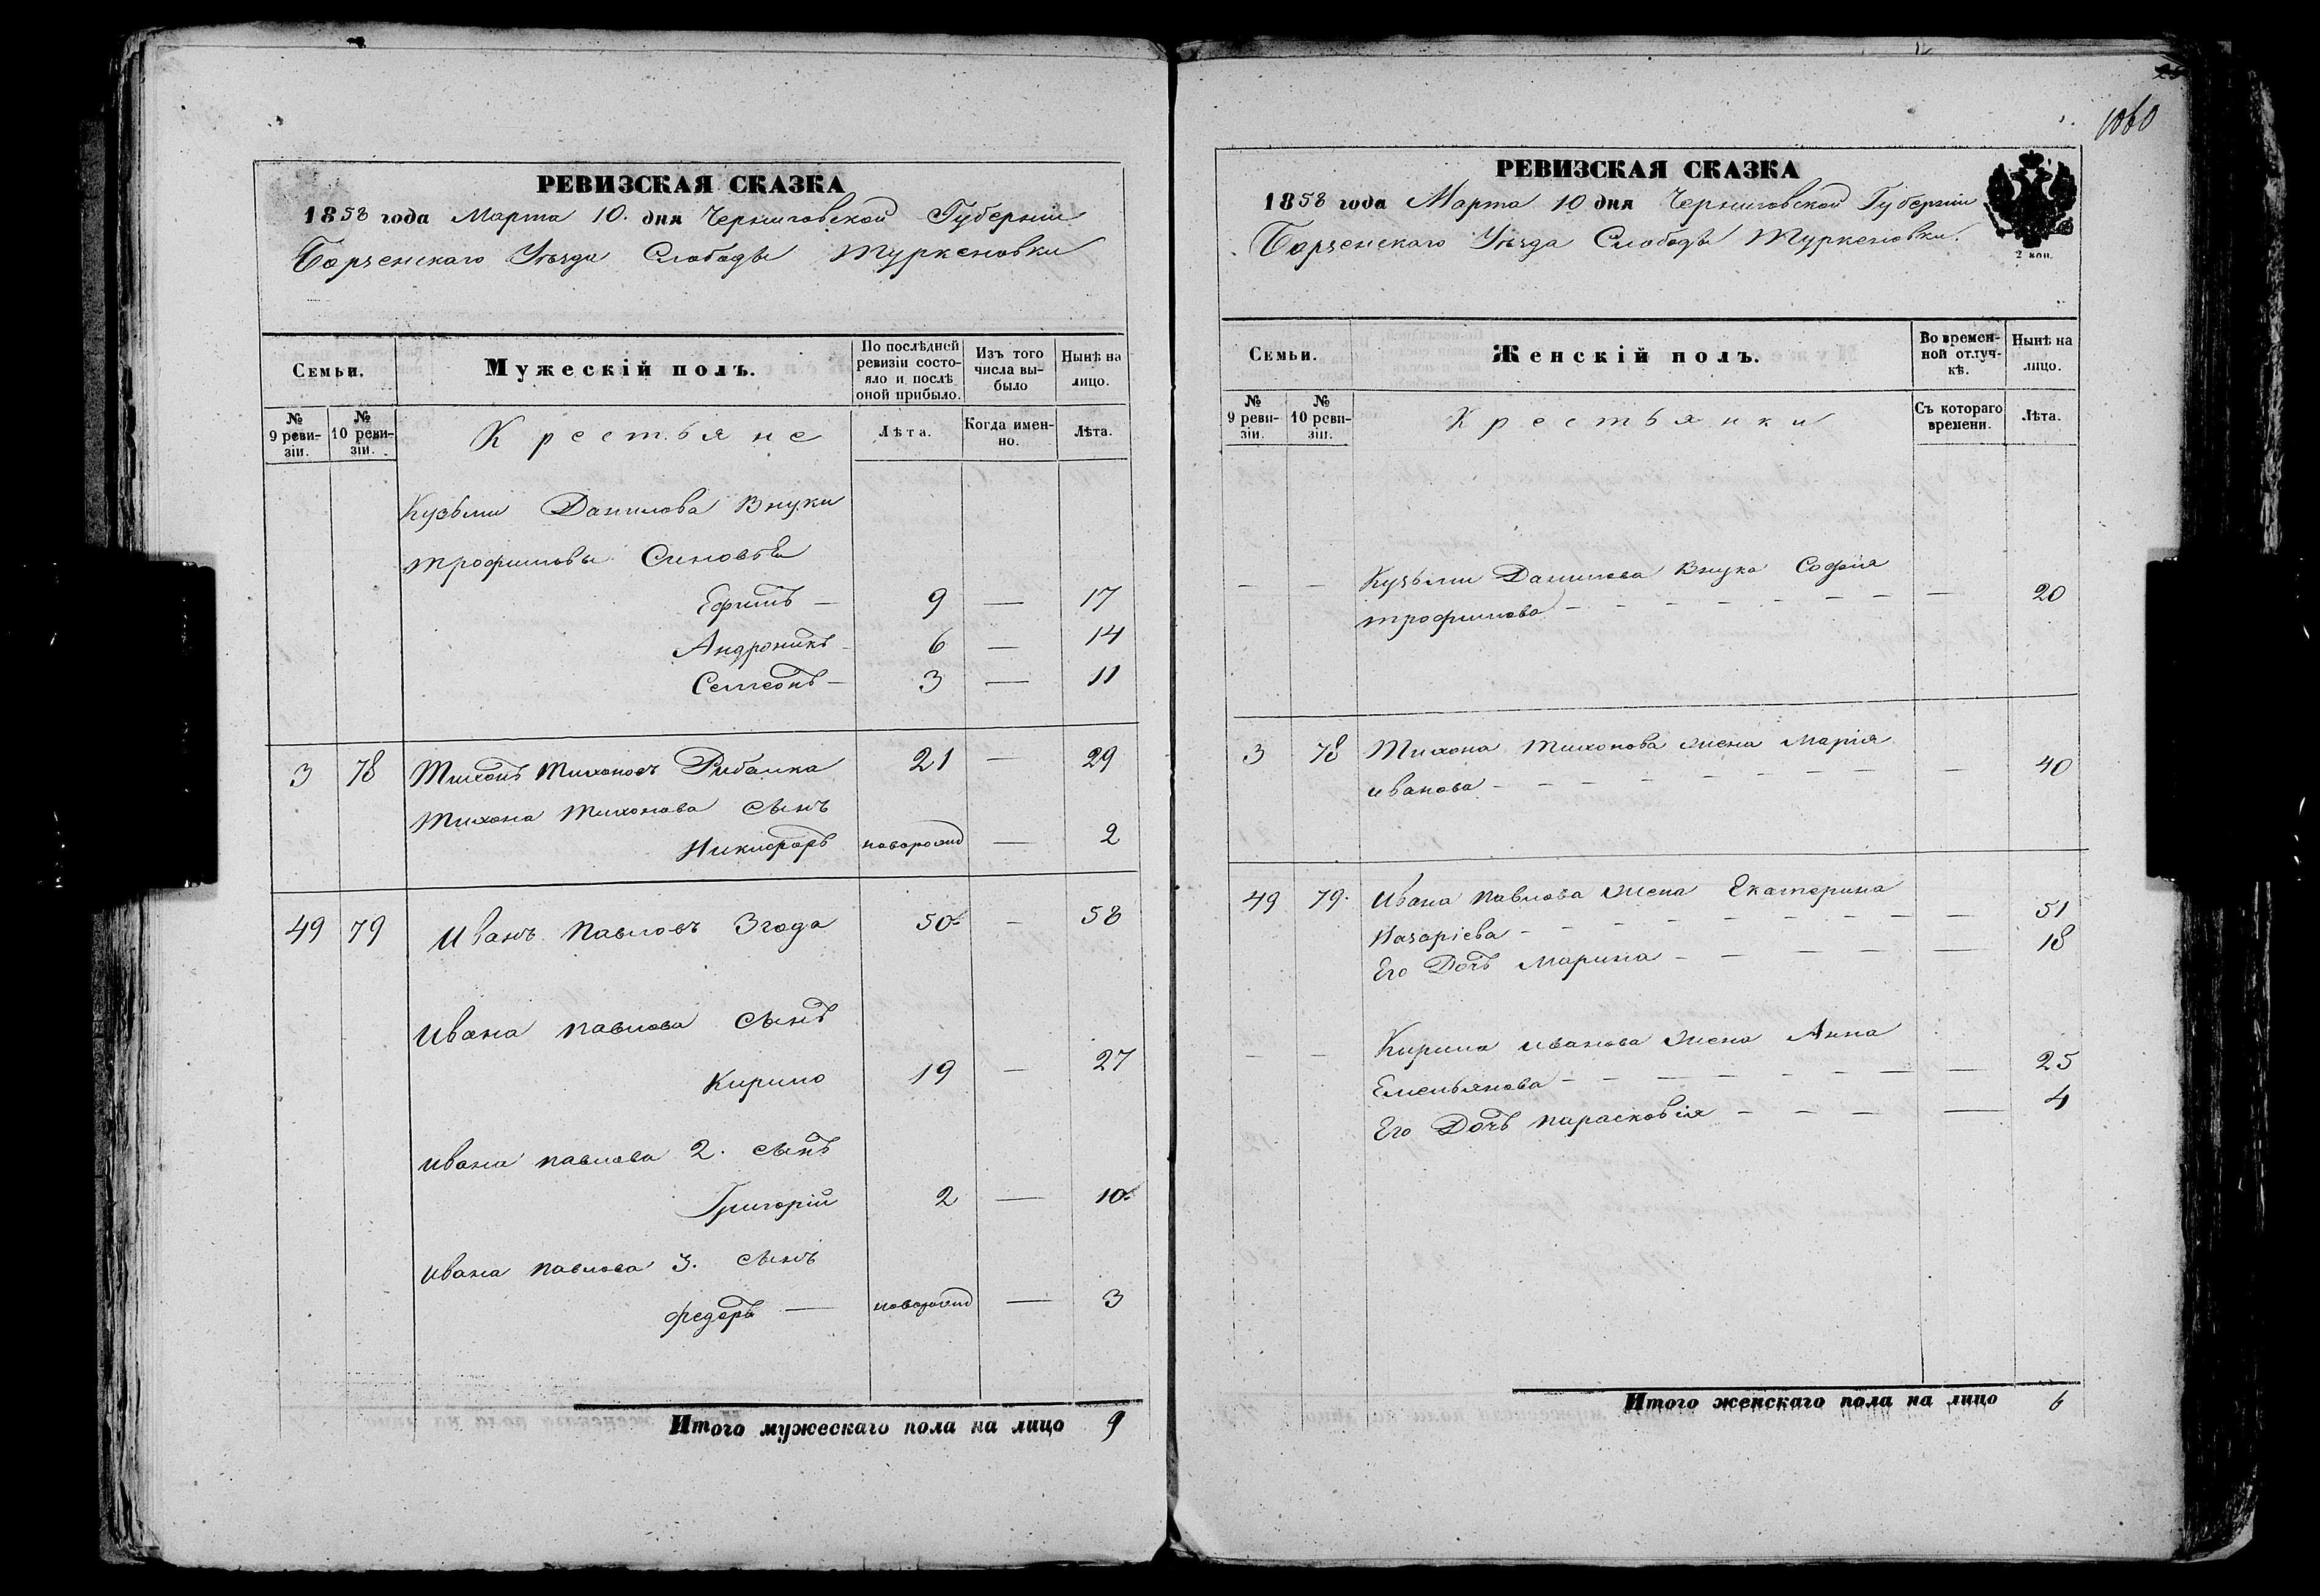 РЕВИЗСКАЯ СКАЗКА
1858 года Марта 10. дня Черниговской Губернии
Борзенскаго Уѣзда Слободы Туркеновки
Семьи.
Мужескій полъ.
По послѣдней ревизіи состояло и послѣ оной прибыло.
Изъ того числа выбыло
Нынѣ на лицо.
№ 9 ревизіи.
№ 10 ревизіи.
Крестьяне
Лѣта.
Когда именно.
Лѣта.
Кузьми Данилова Внуки
трофимовы Синовья
Ефимъ — 9 — 17
Андроникъ - 6 — 14
Семеонъ — 3 — 11
3 78 Тихонъ Тихоновъ Рибалка 21 — 29
Тихона Тихонова сынъ
Никифоръ новорожд — 2
49 79 Иванъ Павловъ Згода 50. — 58
Ивана павлова сынъ
Кирило 19 — 27
Ивана павлова 2. сынъ
Григорій 2 — 10.
Ивана павлова 3. сынъ
федоръ — новорожд — 3
Итого мужескаго пола на лицо 9
1060
РЕВИЗСКАЯ СКАЗКА
1858 года Марта 10 дня Черниговской Губерніи
Борзенскаго Уѣзда Слободы Туркеновки.
2 коп.
Семьи.
Женскій полъ.
Во временной отлучкѣ.
Нынѣ на лицо.
№ 9 ревизіи.
№ 10 ревизіи.
Крестьянки
Съ котораго времени.
Лѣта.
— — Кузьми Данилова внука Софія
трофимова - - - - - - - — 20
3 78 Тихона тихонова жена Марія
иванова - - - - - - - — 40
49 79. Ивана павлова жена Екатерина
Назаріева - - - - - - - — 51
Его Дочь Марина - — — — — 18
— — Кирила иванова жена Анна
Емельянова - - - - - - - — 25
Его Дочь парасковія - — — — 4
Итого женскаго пола на лицо 6